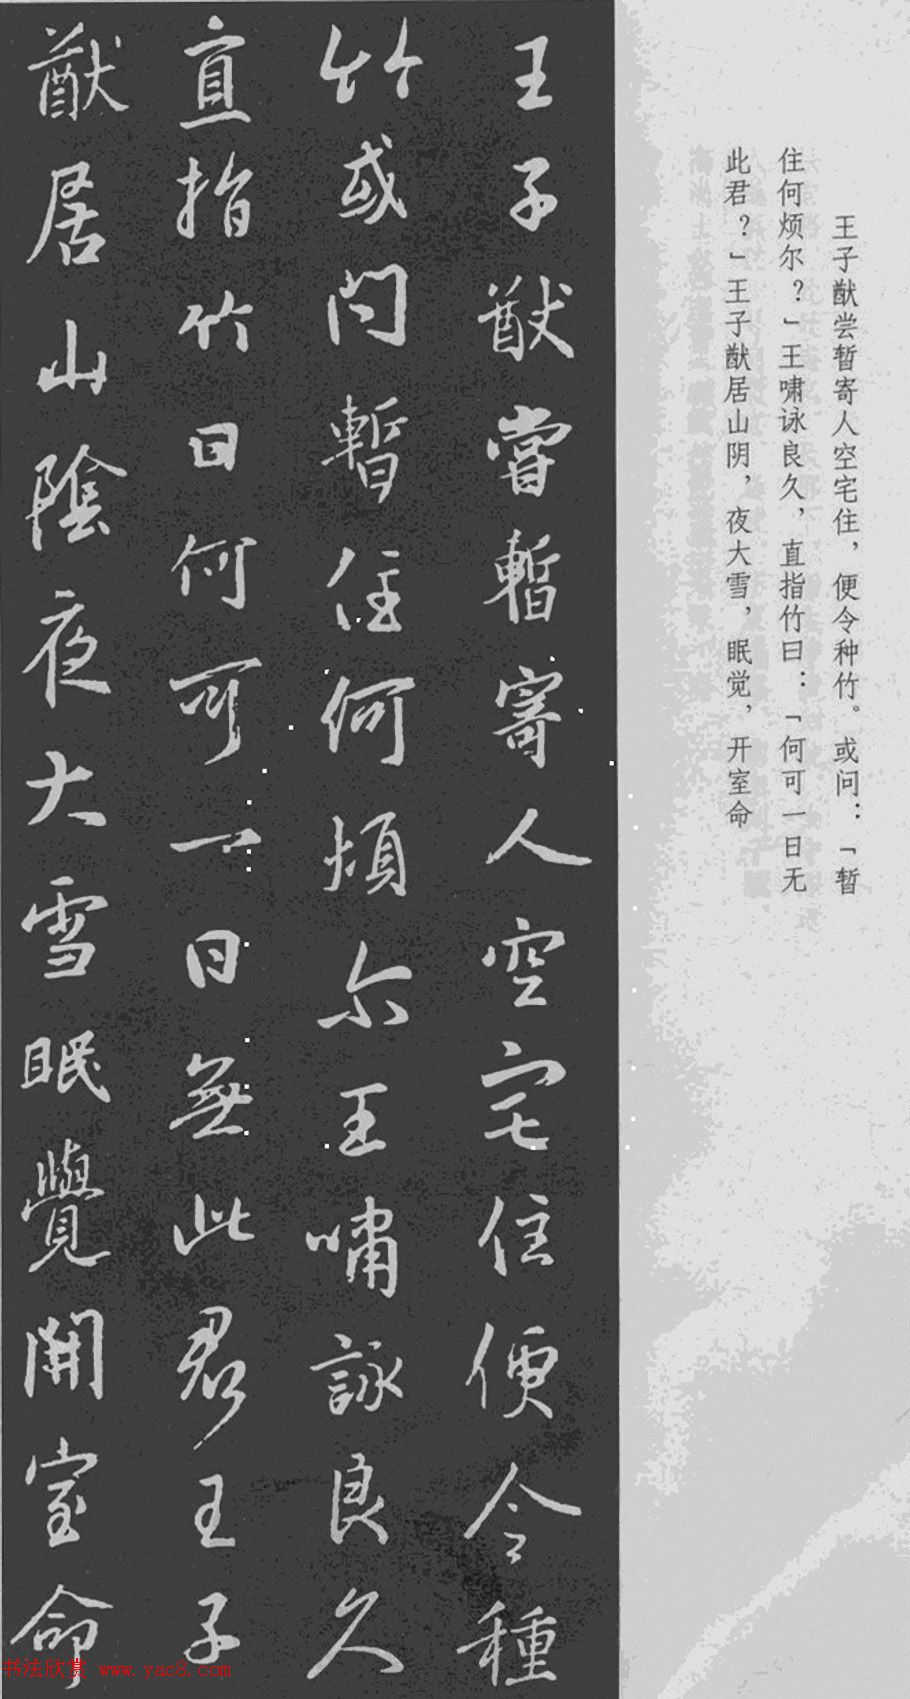 王子猷尝暂寄人空宅住，便令种竹。或问：「暂
住何烦尔？」王啸咏良久，直指竹曰：「何可一日无
此君？」王子猷居山阴，夜大雪，眠觉，开室命
王子猷嘗暫寄人空宅住便令種
竹或问暫住何煩尔王嘯詠良久
直指竹曰何可一日無此君王子
猷居山陰夜大雪眠覺開室命
书法欣赏 www.yac8.com